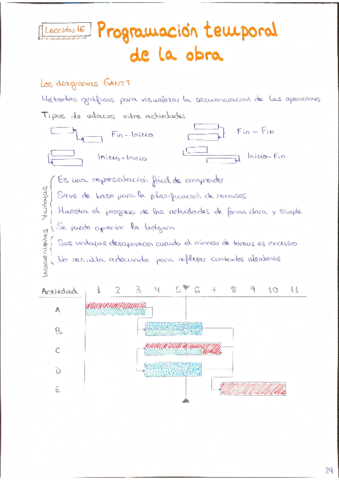 Lección 16
Programación temporal
de la obra
Los diagramas GANTT
Métodos gráficos para visualizar la secuenciación de las operaciones
Tipos de enlaces entre actividades
Fin-Inicio
Fin-Fin
Inicio-Inicio
Inicio-Fin
Ventajas
Es una representación fácil de comprender
Sirve de base para la planificación de recursos
Muestra el progreso de las actividades de forma clara y simple
Se puede apreciar la holgura
Inconvenientes
Sus ventajas desaparecen cuando el número de tareas es excesivo
No resulta adecuado para reflejar contextos aleatorios
Actividad 1 2 3 4 5 6 7 8 9 10 11
A
B
C
D
E
29